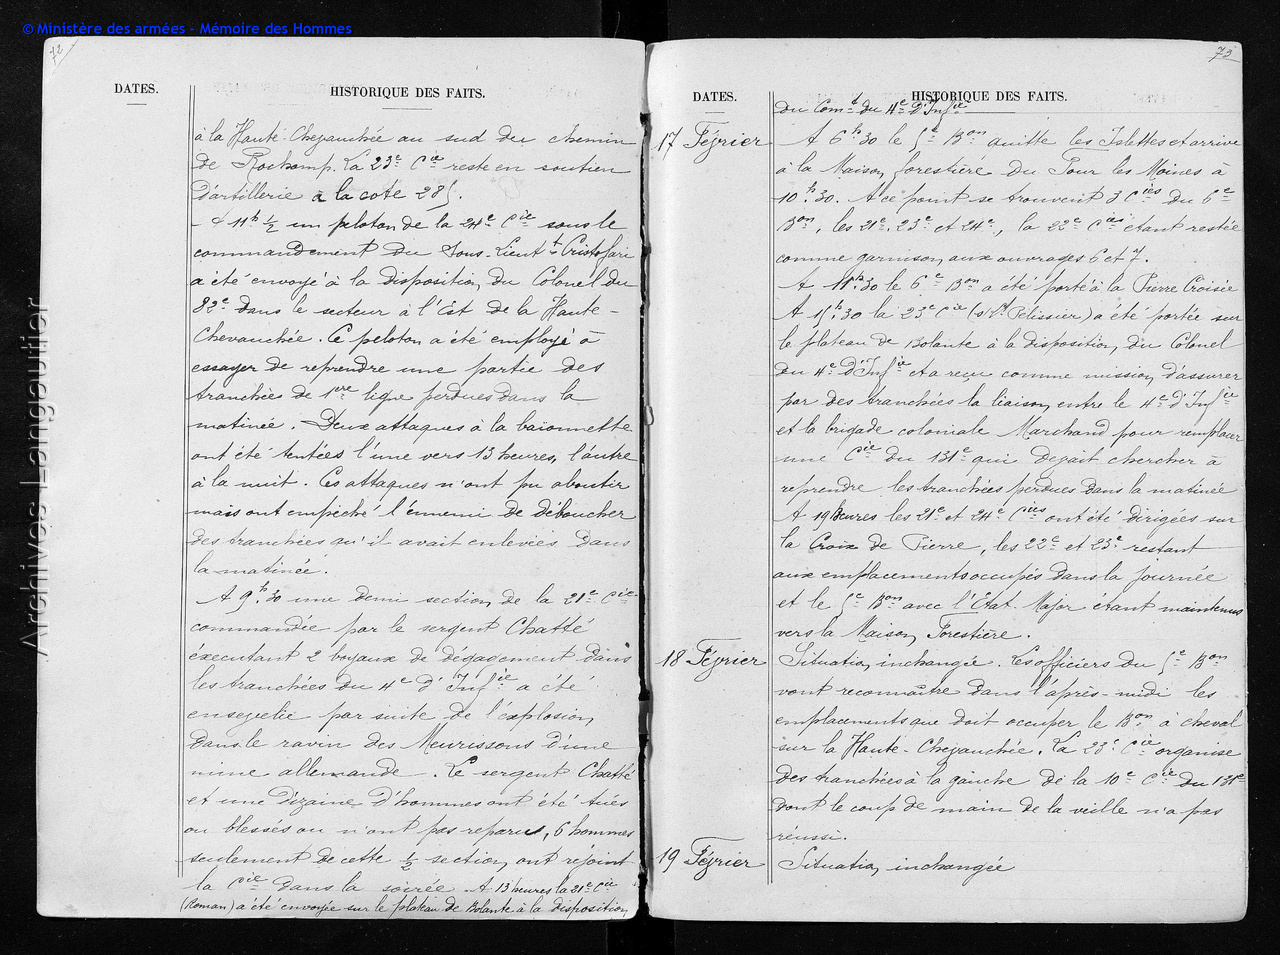 © Ministère des armées - Mémoire des Hommes
Archives Langautier
72
DATES.
HISTORIQUE DES FAITS.
à la Haute-Chevauchée au sud du chemin
de Rochamp. La 23e Cie reste en soutien
d'artillerie à la cote 285.
A 11h 1/2 un peloton de la 24e Cie sous le
commandement du Sous-Lieutt Cristofari
a été envoyé à la disposition du Colonel du
82e dans le secteur à l'Est de la Haute-
Chevauchée. Ce peloton a été employé à
essayer de reprendre une partie des
tranchées de 1re ligne perdues dans la
matinée. Deux attaques à la baïonnette
ont été tentées l'une vers 13 heures, l'autre
à la nuit. Ces attaques n'ont pu aboutir
mais ont empêché l'ennemi de déboucher
des tranchées qu'il avait enlevées dans
la matinée.
A 9h.30 une demi section de la 21e Cie
commandée par le sergent Chatté
éxécutant 2 boyaux de dégagement dans
les tranchées du 4e d'Infie a été
ensevelie par suite de l'explosion
dans le ravin des Meurissons d'une
mine allemande. Le sergent Chatté
et une dizaine d'hommes ont été tués
ou blessés ou n'ont pas reparus, 6 hommes
seulement de cette 1/2 section ont rejoint
la Cie dans la soirée. A 13 heures la 21e Cie
(Roman) a été envoyée sur le plateau de Bolante à la disposition
73
DATES.
HISTORIQUE DES FAITS.
du Comt du 4e d'Infie
17 Février
A 6h30 le 5e Bon quitte les Islettes et arrive
à la Maison forestière du Four les Moines à
10h.30. A ce point se trouvent 3 Cies du 6e
Bon, les 21e, 23e et 24e, la 22e Cie étant restée
comme garnison aux ouvrages 6 et 7.
A 11h.30 le 6e Bon a été porté à la Pierre Croisée
A 15h.30 la 23e Cie (s/Lt Pelissier) a été portée sur
le plateau de Bolante à la disposition du Colonel
du 4e d'Infie et a reçu comme mission d'assurer
par des tranchées la liaison entre le 4e d'Infie
et la brigade coloniale Marchand pour remplacer
une Cie du 131e qui devait chercher à
reprendre les tranchées perdues dans la matinée
A 19 heures les 21e et 24e Cies ont été dirigées sur
la Croix de Pierre, les 22e et 23e restant
aux emplacements occupés dans la journée
et le 5e Bon avec l'Etat-Major étant maintenus
vers la Maison Forestière.
18 Février
Situation inchangée. Les officiers du 5e Bon
vont reconnaître dans l'après-midi les
emplacements que doit occuper le Bon à cheval
sur la Haute-Chevauchée. La 23e Cie organise
des tranchées à la gauche de la 10e Cie du 131e
dont le coup de main de la veille n'a pas
réussi.
19 Février
Situation inchangée